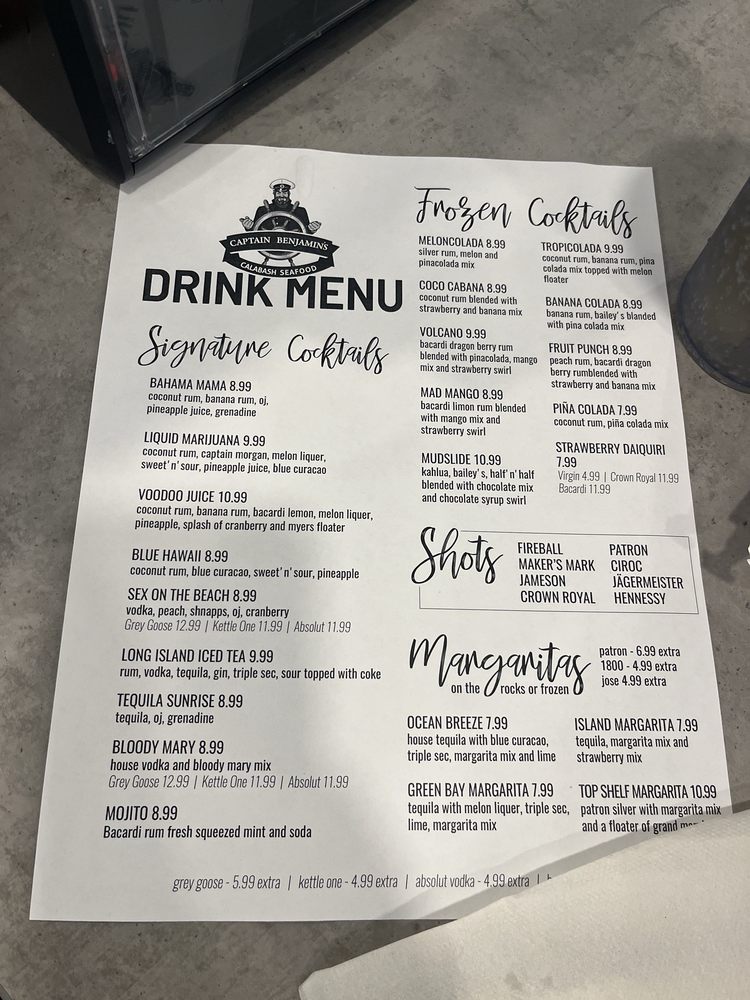 CAPTAIN BENJAMIN'S
CALABASH SEAFOOD
DRINK MENU
Signature Cocktails
BAHAMA MAMA 8.99
coconut rum, banana rum, oj,
pineapple juice, grenadine
LIQUID MARIJUANA 9.99
coconut rum, captain morgan, melon liquer,
sweet'n'sour, pineapple juice, blue curacao
VOODOO JUICE 10.99
coconut rum, banana rum, bacardi lemon, melon liquer,
pineapple, splash of cranberry and myers floater
BLUE HAWAII 8.99
coconut rum, blue curacao, sweet'n'sour, pineapple
SEX ON THE BEACH 8.99
vodka, peach, shnapps, oj, cranberry
Grey Goose 12.99 | Kettle One 11.99 | Absolut 11.99
LONG ISLAND ICED TEA 9.99
rum, vodka, tequila, gin, triple sec, sour topped with coke
TEQUILA SUNRISE 8.99
tequila, oj, grenadine
BLOODY MARY 8.99
house vodka and bloody mary mix
Grey Goose 12.99 | Kettle One 11.99 | Absolut 11.99
MOJITO 8.99
Bacardi rum fresh squeezed mint and soda
Frozen Cocktails
MELONCOLADA 8.99
silver rum, melon and
pinacolada mix
COCO CABANA 8.99
coconut rum blended with
strawberry and banana mix
VOLCANO 9.99
bacardi dragon berry rum
blended with pinacolada, mango
mix and strawberry swirl
MAD MANGO 8.99
bacardi limon rum blended
with mango mix and
strawberry swirl
MUDSLIDE 10.99
kahlua, bailey's, half'n'half
blended with chocolate mix
and chocolate syrup swirl
TROPICOLADA 9.99
coconut rum, banana rum, pina
colada mix topped with melon
floater
BANANA COLADA 8.99
banana rum, bailey's blanded
with pina colada mix
FRUIT PUNCH 8.99
peach rum, bacardi dragon
berry rumblended with
strawberry and banana mix
PIÑA COLADA 7.99
coconut rum, piña colada mix
STRAWBERRY DAIQUIRI
7.99
Virgin 4.99 | Crown Royal 11.99
Bacardi 11.99
Shots
FIREBALL
MAKER'S MARK
JAMESON
CROWN ROYAL
PATRON
CIROC
JÄGERMEISTER
HENNESSY
Margaritas
on the rocks or frozen
patron - 6.99 extra
1800 - 4.99 extra
jose 4.99 extra
OCEAN BREEZE 7.99
house tequila with blue curacao,
triple sec, margarita mix and lime
GREEN BAY MARGARITA 7.99
tequila with melon liquer, triple sec,
lime, margarita mix
ISLAND MARGARITA 7.99
tequila, margarita mix and
strawberry mix
TOP SHELF MARGARITA 10.99
patron silver with margarita mix
and a floater of grand
grey goose - 5.99 extra | kettle one - 4.99 extra | absolut vodka - 4.99 extra |